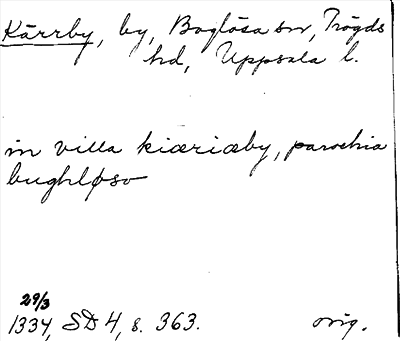 Kärrby, by, Boglösa sn, Trögds
hd, Uppsala l.
in villa kiæriæby, parochia
bughløso
29/3
1334, SD 4, s. 363. orig.